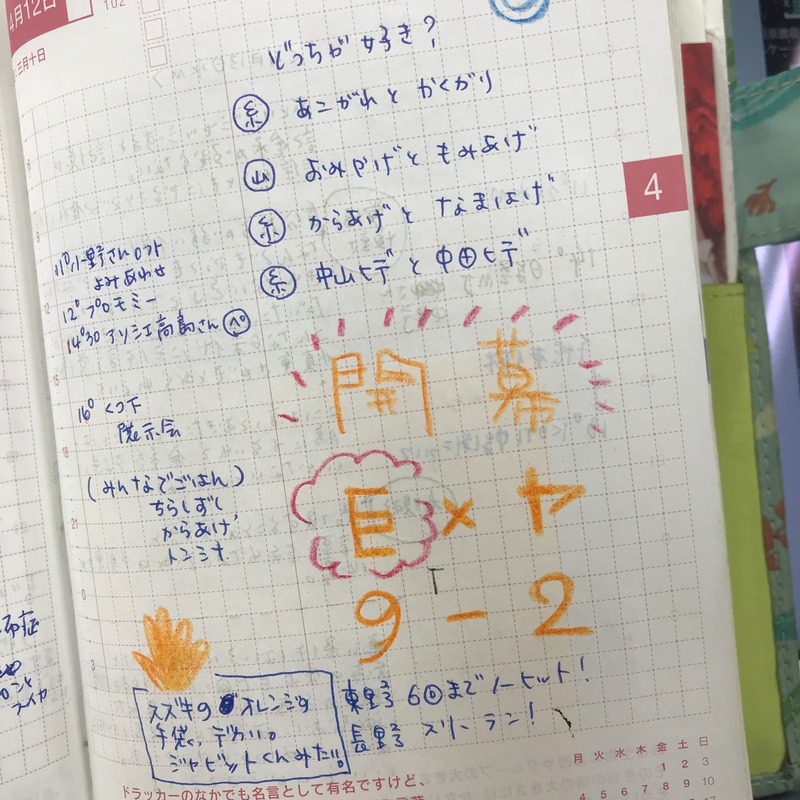 4月12日
102
三月十日
どっちが好き?
糸 あこがれと かくがり
山 おみやげと もみあげ
糸 からあげと なまはげ
糸 中山ヒデと 中田ヒデ
4
11°小野さんロフト
よみあわせ
12° プロモミー
14°30 アソシエ高島さん
16° くつ下
展示会
(みんなでごはん)
ちらしずし
からあげ
トン汁
開幕
巨×ヤ
9-2
スズキの オレンジの
手袋、デカい。
ジャビットくんみたい。
東野 6回までノーヒット!
長野 スリーラン!
ドラッカーのなかでも名言として有名ですけど、
月 火 水 木 金 土 日
1 2 3
4 5 6 7 8 9 10